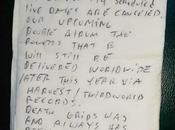 SCHEDULED
LIVE DATES ARE CANCELED.
OUR UPCOMING
DOUBLE ALBUM THE
POWERS THAT B
WILL STILL BE
DELIVERED WORLDWIDE
LATER THIS YEAR VIA
HARVEST/THIRDWORLDS
RECORDS.
DEATH GRIPS WAS
AND ALWAYS HAS